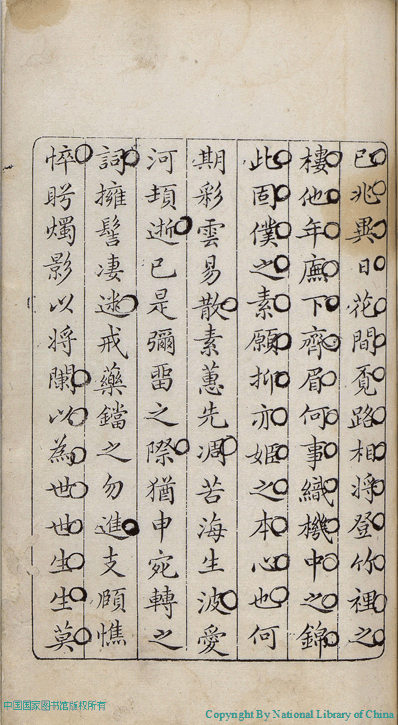 已兆異日花間覓路相將登竹裡之
樓他年廡下齊眉何事織機中之錦
此固僕之素願抑亦姬之本心也何
期彩雲易散素蕙先凋苦海生波愛
河頹逝已是彌留之際猶申宛轉之
詞擁髻凄迷戒藥鐺之勿進支頤憔
悴眄燭影以將闌以為世世生生莫
中国国家图书馆版权所有
Copyright By National Library of China